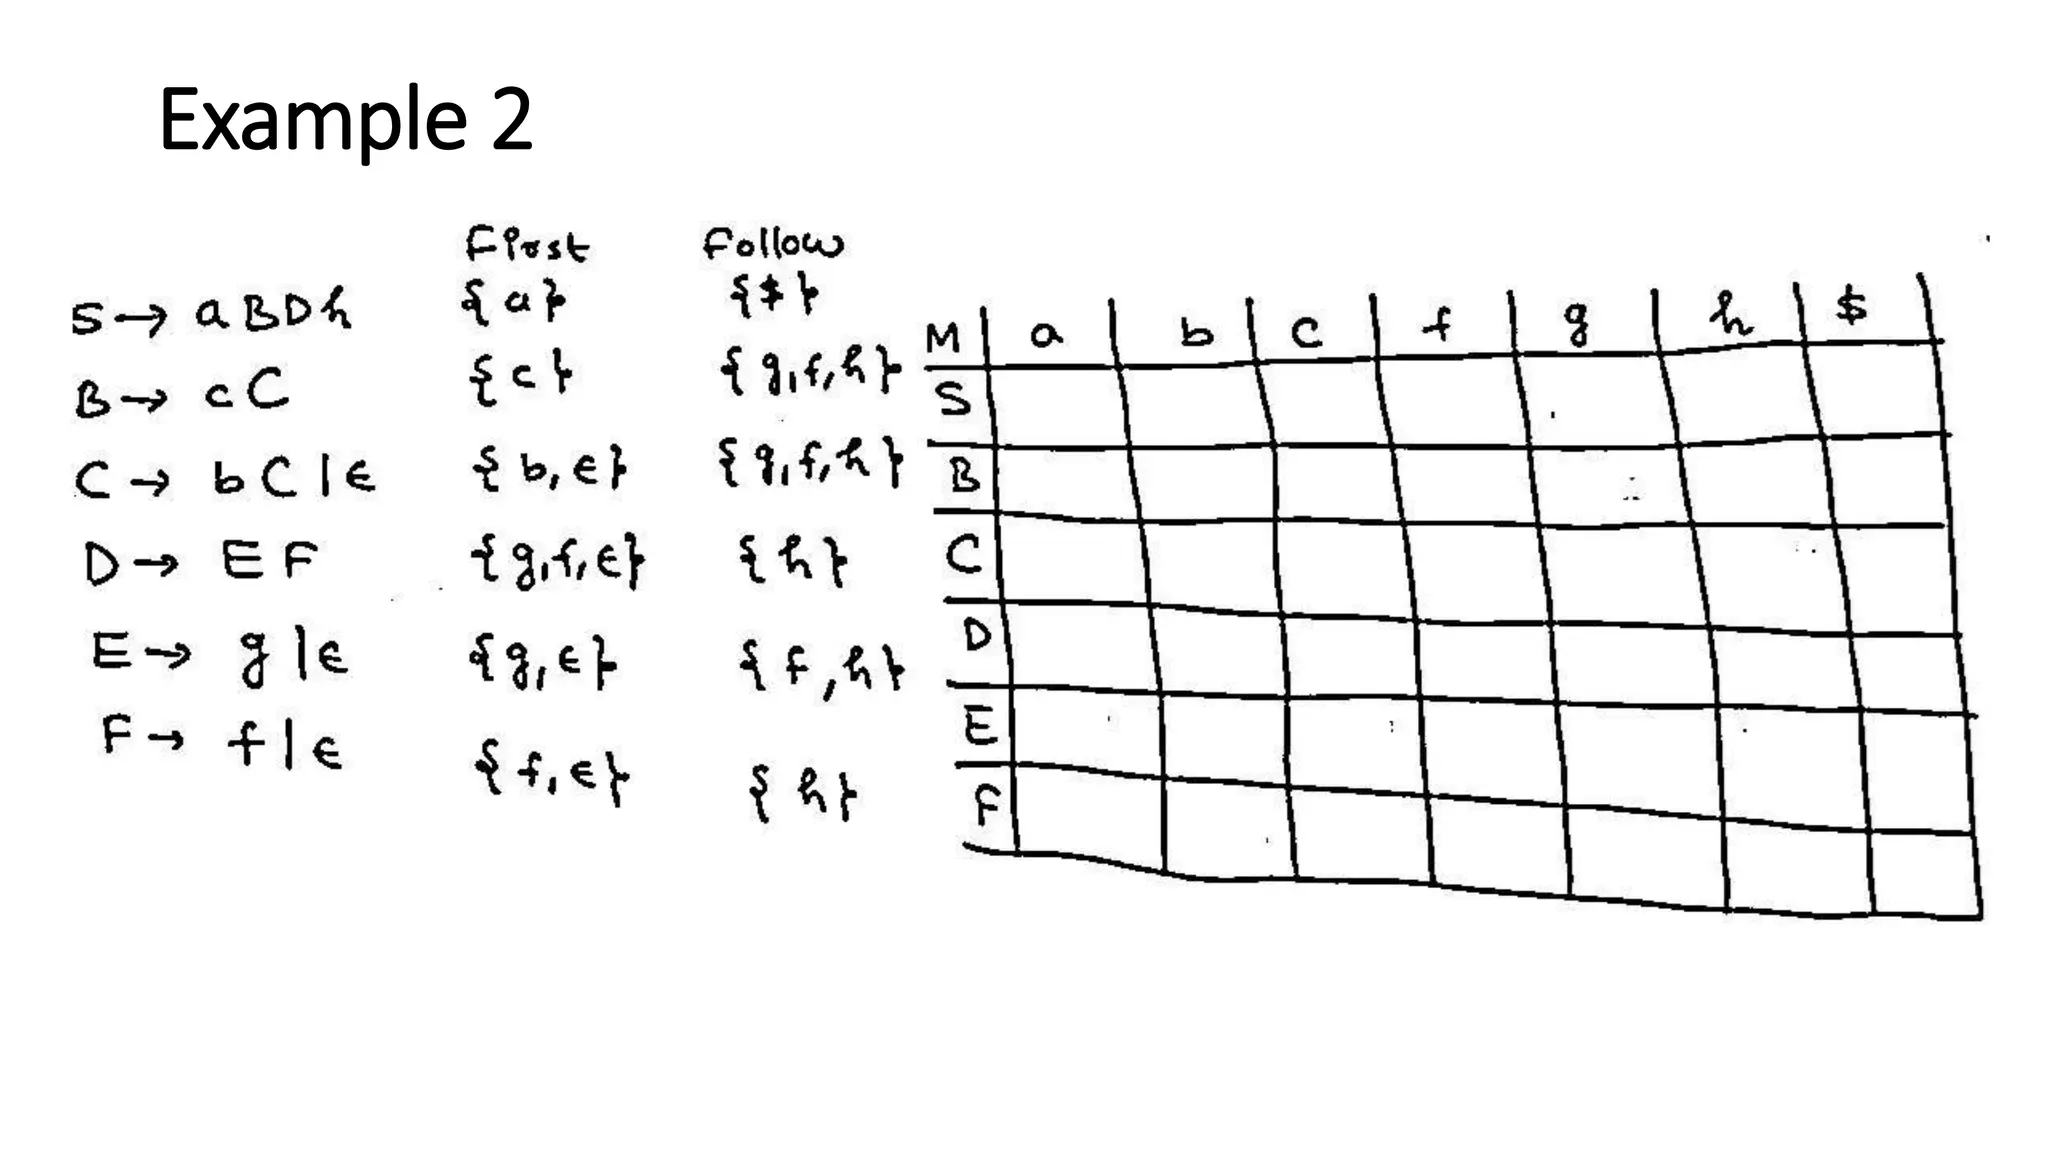 Example 2
First Follow
S → aBDh {a} {$}
B → cC {c} {g,f,h}
C → bC|ϵ {b,ϵ} {g,f,h}
D → EF {g,f,ϵ} {h}
E → g|ϵ {g,ϵ} {f,h}
F → f|ϵ {f,ϵ} {h}
M a b c f g h $
S
B
C
D
E
F